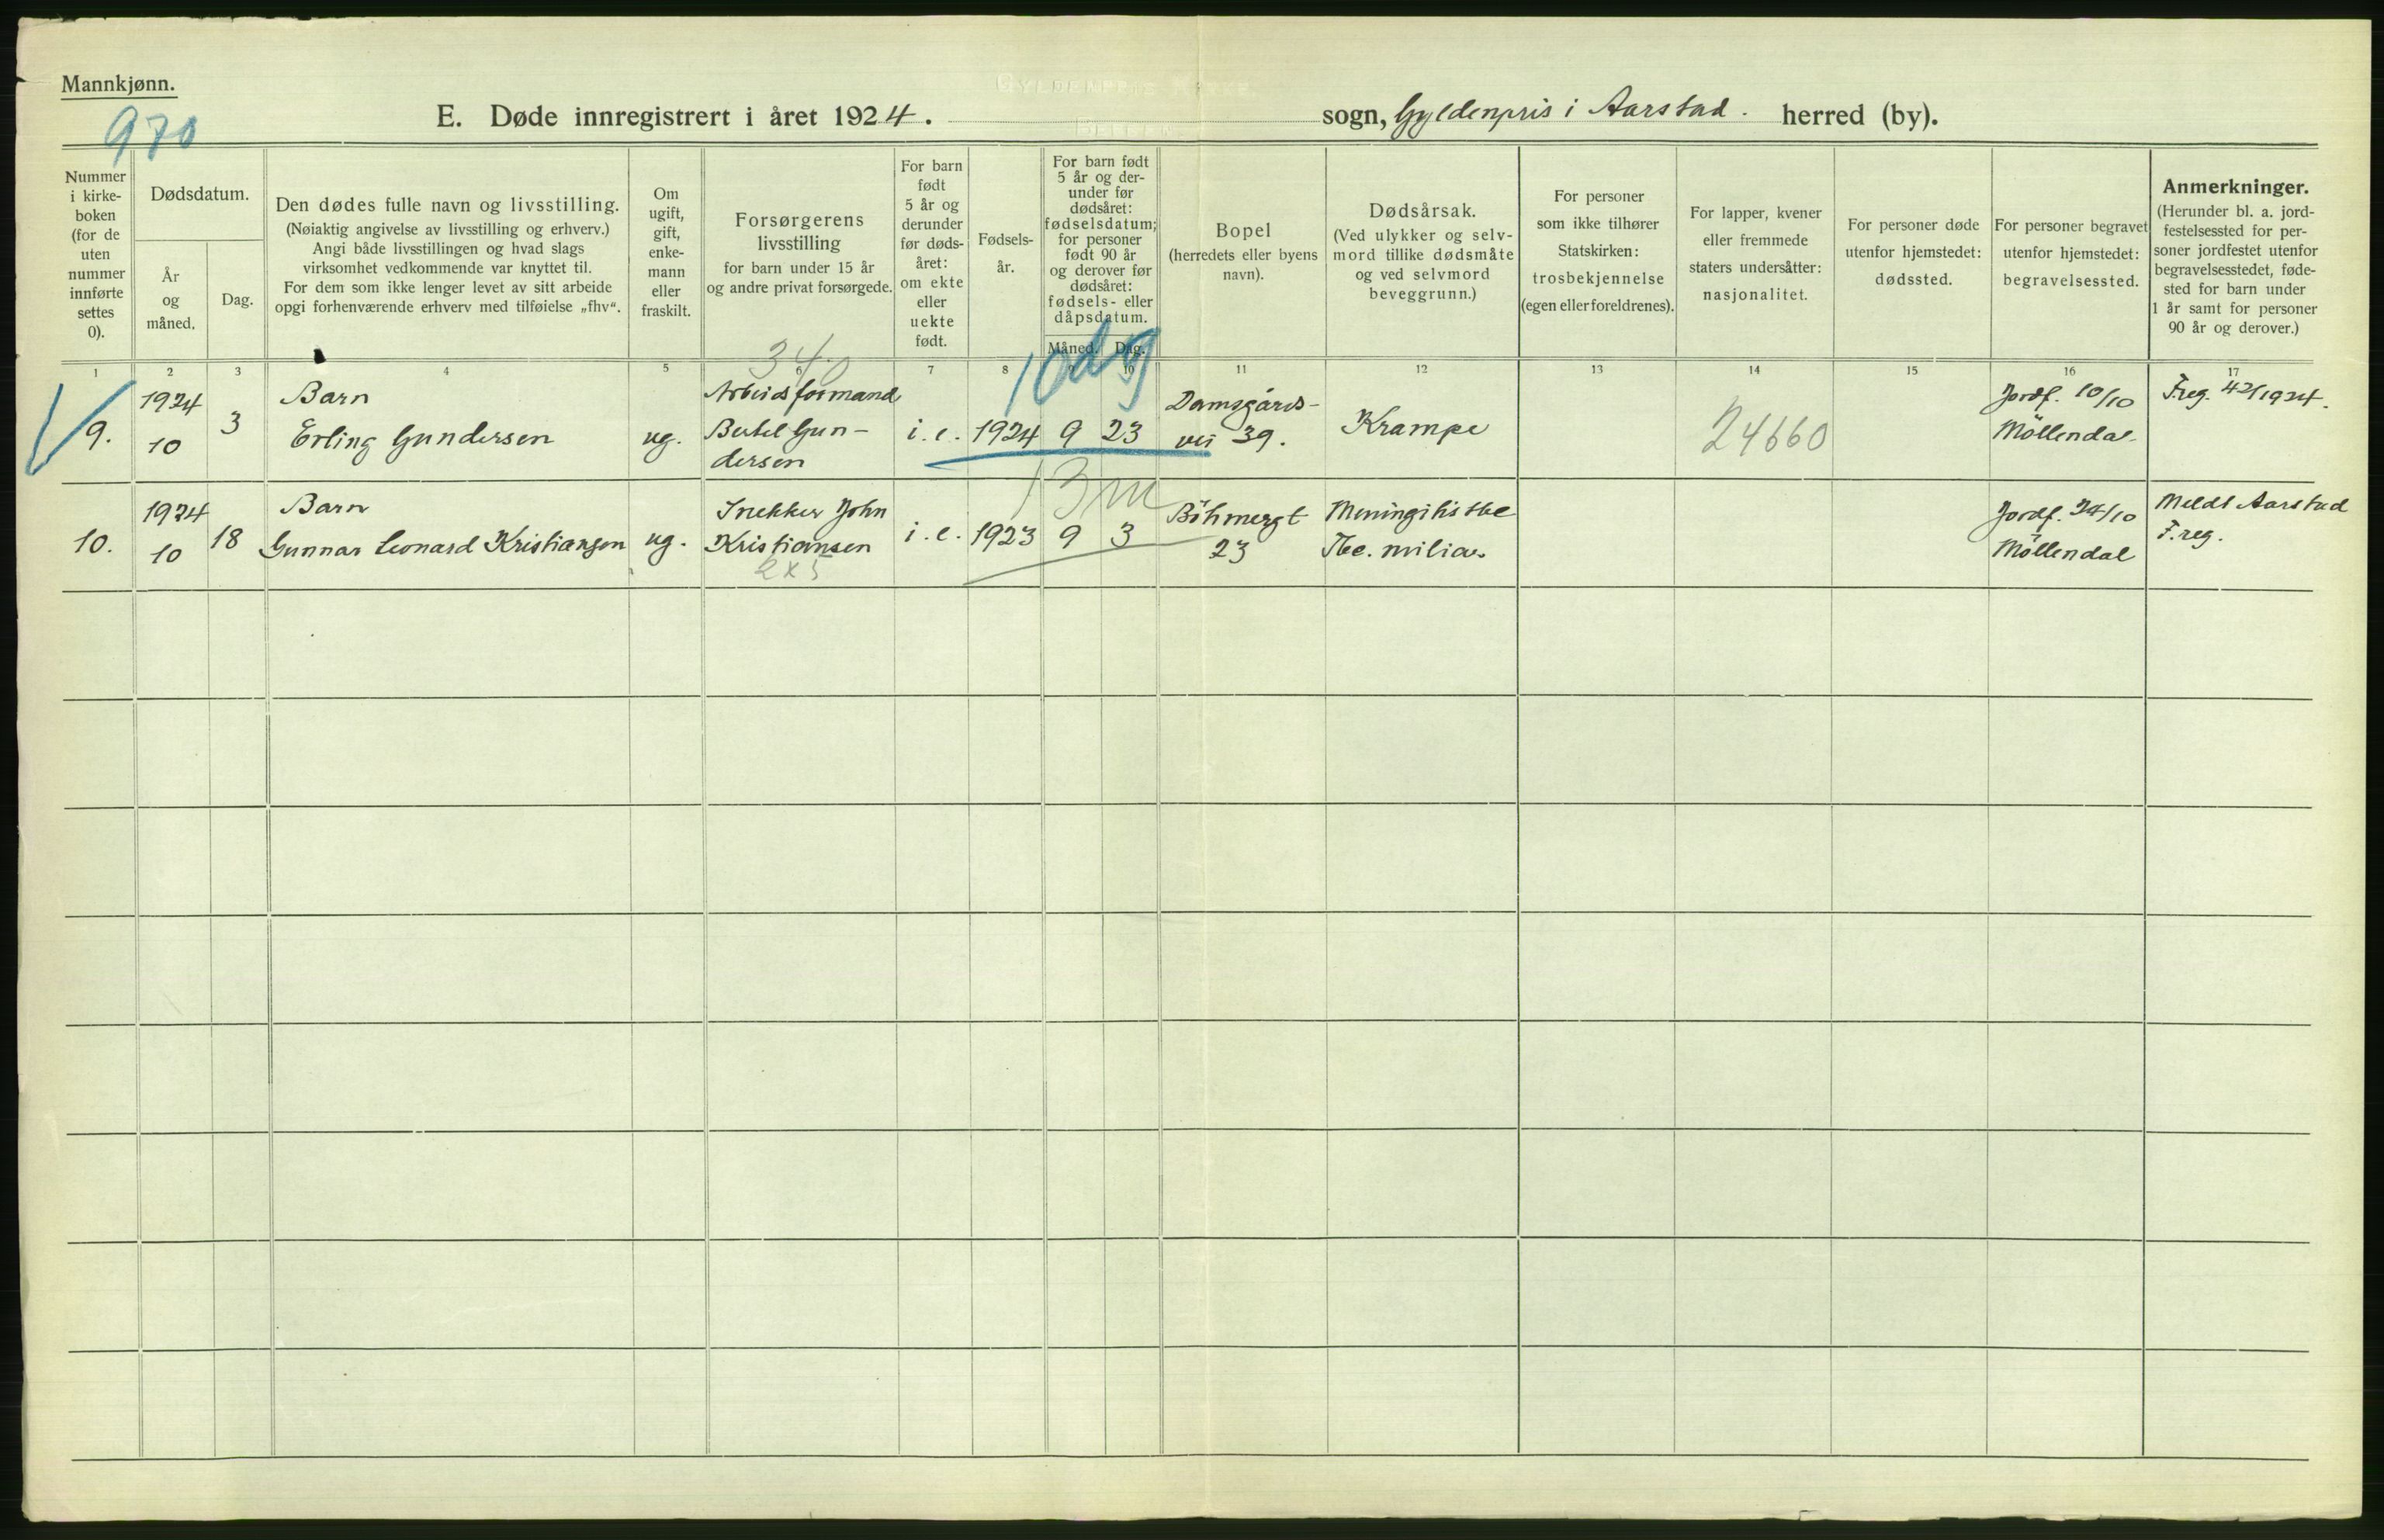 Mannkjønn.
970
GYLDENPRIS KIRKE
BERGEN.
E. Døde innregistrert i året 1924. sogn, Gyldenpris i Aarstad. herred (by).
Nummer
i kirke-
boken
(for de
uten
nummer
innførte
settes
0).
Dødsdatum.
År
og
måned.
Dag.
Den dødes fulle navn og livsstilling.
(Nøiaktig angivelse av livsstilling og erhverv.)
Angi både livsstillingen og hvad slags
virksomhet vedkommende var knyttet til.
For dem som ikke lenger levet av sitt arbeide
opgi forhenværende erhverv med tilføielse „fhv“.
Om
ugift,
gift,
enke-
mann
eller
fraskilt.
Forsørgerens
livsstilling
for barn under 15 år
og andre privat forsørgede.
For barn
født
5 år og
derunder
før døds-
året:
om ekte
eller
uekte
født.
Fødsels-
år.
For barn født
5 år og der-
under før
dødsåret:
fødselsdatum;
for personer
født 90 år
og derover før
dødsåret:
fødsels- eller
dåpsdatum.
Måned. Dag.
Bopel
(herredets eller byens
navn).
Dødsårsak.
(Ved ulykker og selv-
mord tillike dødsmåte
og ved selvmord
beveggrunn.)
For personer
som ikke tilhører
Statskirken:
trosbekjennelse
(egen eller foreldrenes).
For lapper, kvener
eller fremmede
staters undersåtter:
nasjonalitet.
For personer døde
utenfor hjemstedet:
dødssted.
For personer begravet
utenfor hjemstedet:
begravelsessted.
Anmerkninger.
(Herunder bl. a. jord-
festelsessted for per-
soner jordfestet utenfor
begravelsesstedet, føde-
sted for barn under
1 år samt for personer
90 år og derover.)
1 2 3 4 5 6 7 8 9 10 11 12 13 14 15 16 17
9.
1924
10
3
Barn
Erling Gundersen
ug.
340
Arbeidsformand
Bertel Gun-
dersen
i. e.
1924
9 23
10 dg
Damsgårds-
vei 39.
Krampe
24660
Jordf. 10/10
Möllendal
F.reg. 42/1924.
10.
1924
10
18
Barn
Gunnar Leonard Kristiansen
ug.
Snekker John
Kristiansen
2x5
i. e.
1923
9 3
13m
Böhmergt
23
Meningitis tbc
Tbc. miliar.
Jordf. 24/10
Möllendal
Meldt Aarstad
F.reg.